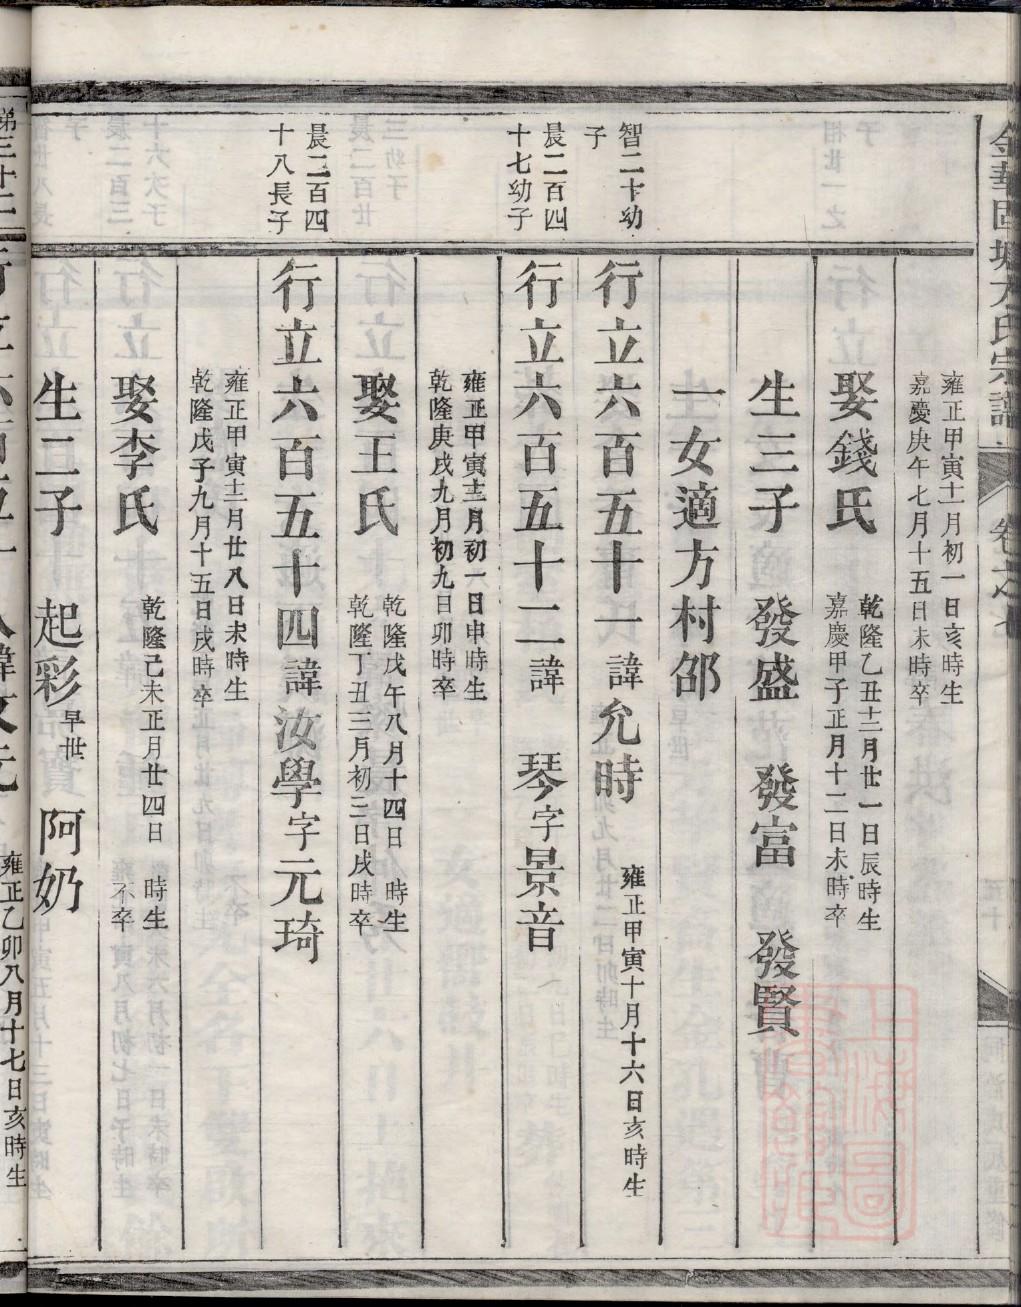 金華固塘方氏宗譜
卷之七
雍正甲寅十一月初一日亥時生
嘉慶庚午七月十五日未時卒
娶錢氏
乾隆乙丑十二月廿一日辰時生
嘉慶甲子正月十二日未時卒
生三子 發盛 發富 發賢
一女適方村邵
智二十幼
子
行立六百五十一諱允時
雍正甲寅十月十六日亥時生
晨二百四
十七幼子
行立六百五十二諱 琴字景音
雍正甲寅十二月初一日申時生
乾隆庚戌九月初九日卯時卒
娶王氏
乾隆戊午八月十四日 時生
乾隆丁丑三月初三日戌時卒
晨二百四
十八長子
行立六百五十四諱汝學字元琦
雍正甲寅十二月廿八日未時生
乾隆戊子九月十五日戌時卒
娶李氏
乾隆己未正月廿四日 時生
不卒
生二子 起彩早世 阿奶
雍正乙卯八月十七日亥時生